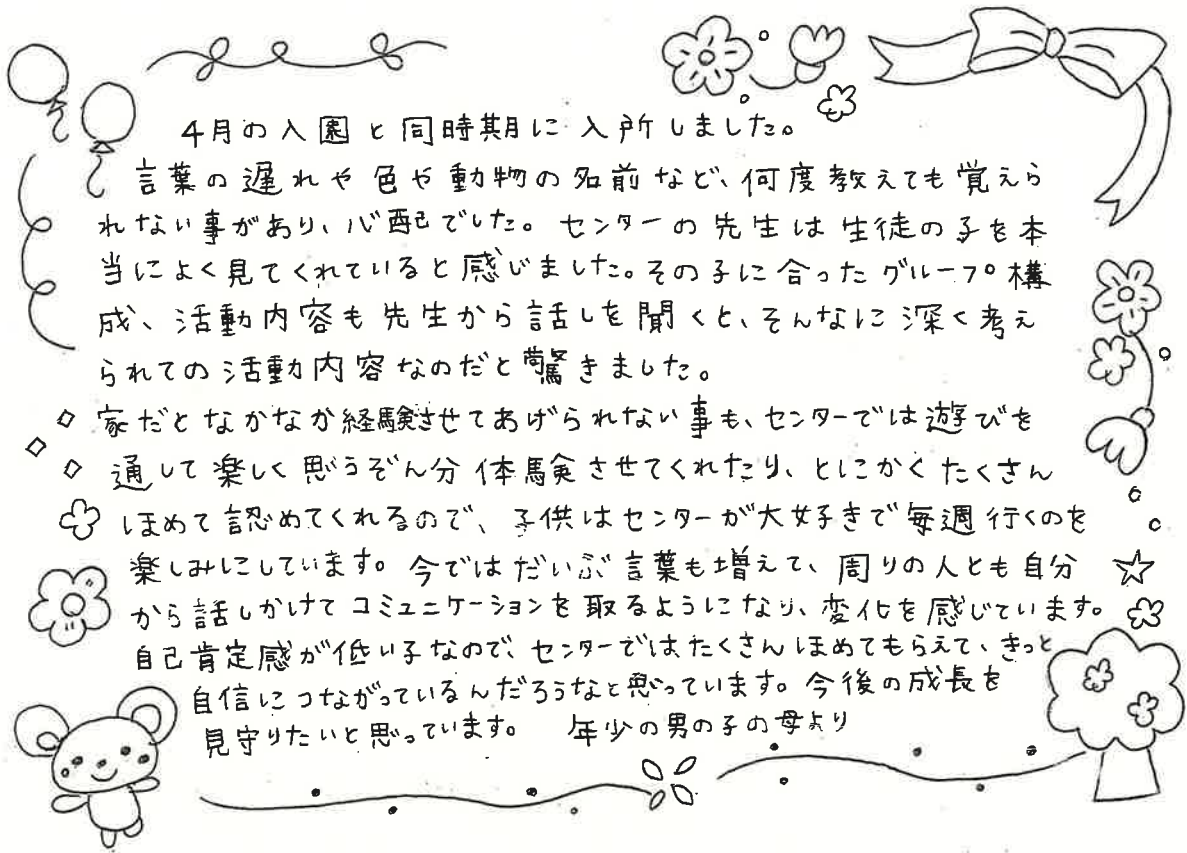 4月の入園と同時期に入所しました。
言葉の遅れや色や動物の名前など、何度教えても覚えら
れない事があり、心配でした。センターの先生は生徒の子を本
当によく見てくれていると感じました。その子に合ったグループ構
成、活動内容も先生から話しを聞くと、そんなに深く考え
られての活動内容なのだと驚きました。
家だとなかなか経験させてあげられない事も、センターでは遊びを
通して楽しく思うぞん分体験させてくれたり、とにかくたくさん
ほめて認めてくれるので、子供はセンターが大好きで毎週行くのを
楽しみにしています。今ではだいぶ言葉も増えて、周りの人とも自分
から話しかけてコミュニケーションを取るようになり、変化を感じています。
自己肯定感が低い子なので、センターではたくさんほめてもらえて、きっと
自信につながっているんだろうなと思っています。今後の成長を
見守りたいと思っています。 年少の男の子の母より